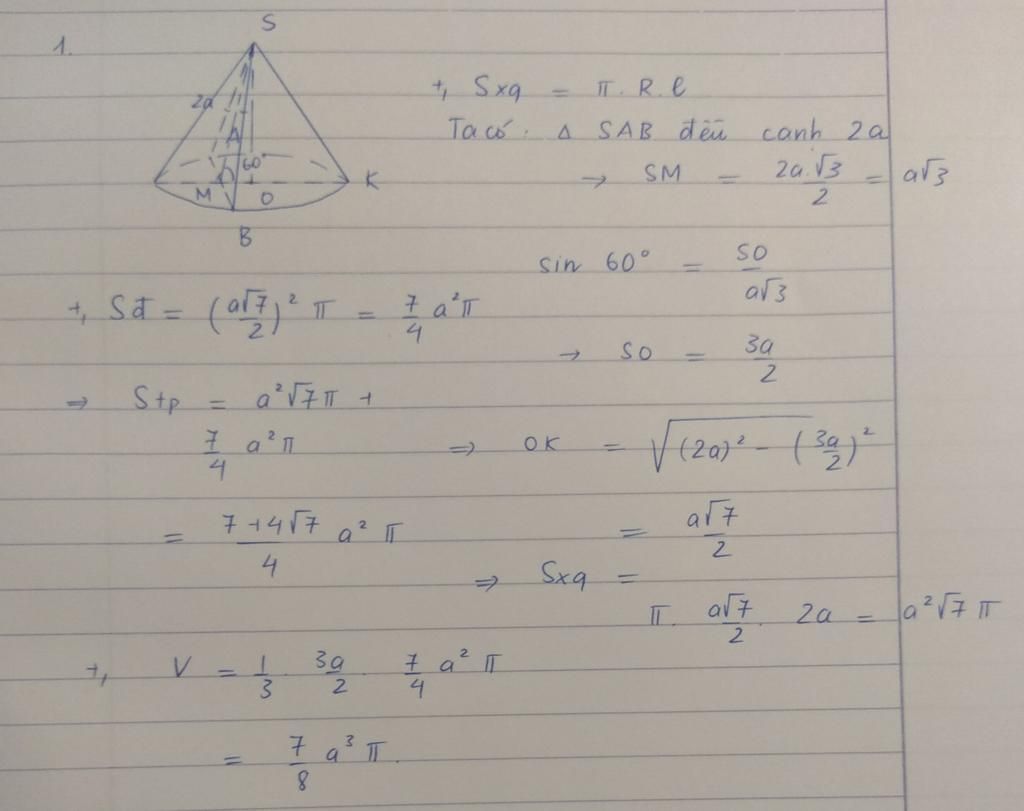 1.
S
2a
A
60°
M
O
K
B
+, Sxq = π. R. l
Ta có. Δ SAB đều cạnh 2a
→ SM = 2a.√3/2 = a√3
sin 60° = SO/a√3
→ SO = 3a/2
⇒ OK = √((2a)² - (3a/2)²)
= a√7/2
⇒ Sxq =
π. a√7/2. 2a = a²√7 π
+, Sđ = (a√7/2)² π = 7/4 a²π
⇒ Stp = a²√7π +
7/4 a²π
= 7+4√7/4 a² π
+, V = 1/3. 3a/2. 7/4 a² π
= 7/8 a³ π.